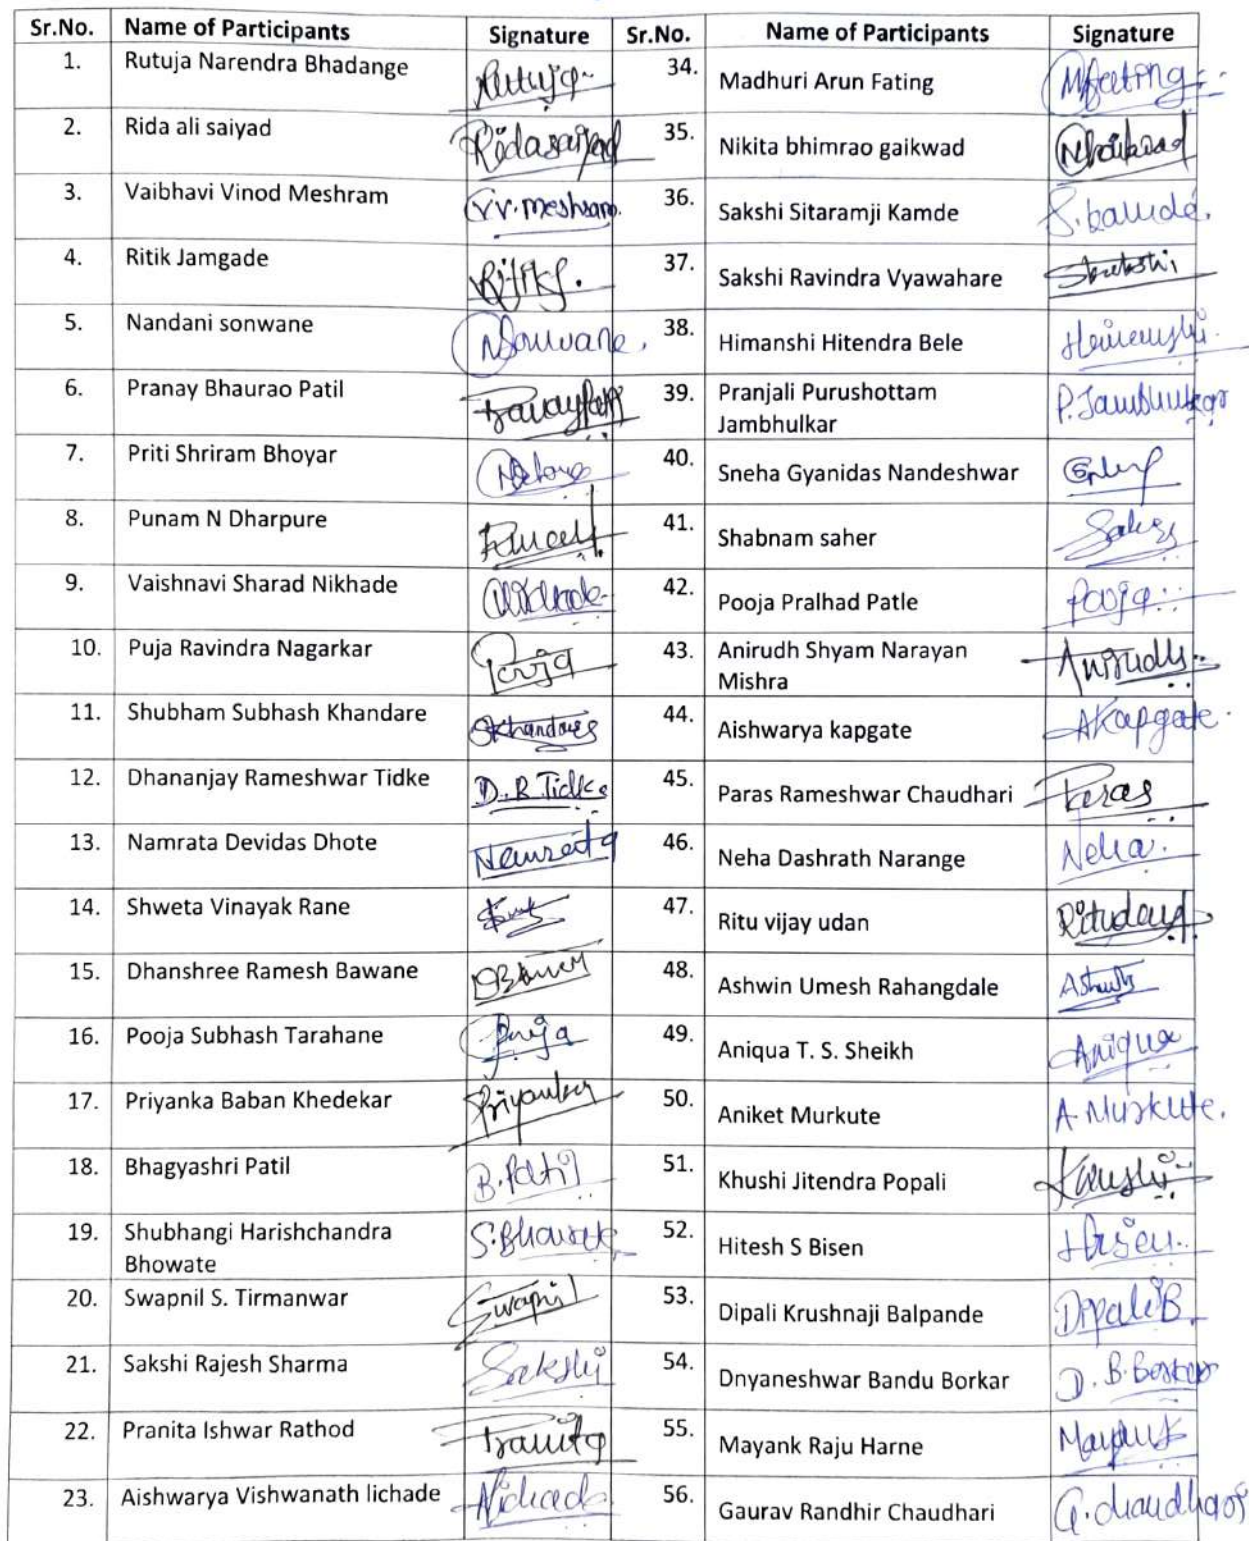 Sr.No. Name of Participants Signature Sr.No. Name of Participants Signature
1. Rutuja Narendra Bhadange Rutuja 34. Madhuri Arun Fating MFating
2. Rida ali saiyad Ridasaiyad 35. Nikita bhimrao gaikwad
3. Vaibhavi Vinod Meshram V.V.meshram. 36. Sakshi Sitaramji Kamde S.kamde.
4. Ritik Jamgade 37. Sakshi Ravindra Vyawahare Sakshi
5. Nandani sonwane NSonwane. 38. Himanshi Hitendra Bele Himanshi
6. Pranay Bhaurao Patil PranayPatil 39. Pranjali Purushottam
Jambhulkar P.Jambhulkar
7. Priti Shriram Bhoyar 40. Sneha Gyanidas Nandeshwar
8. Punam N Dharpure 41. Shabnam saher Saher
9. Vaishnavi Sharad Nikhade 42. Pooja Pralhad Patle Pooja
10. Puja Ravindra Nagarkar Puja 43. Anirudh Shyam Narayan
Mishra Anirudh
11. Shubham Subhash Khandare SKhandare 44. Aishwarya kapgate AKapgate.
12. Dhananjay Rameshwar Tidke D.R Tidke 45. Paras Rameshwar Chaudhari Paras
13. Namrata Devidas Dhote Namrata 46. Neha Dashrath Narange Neha.
14. Shweta Vinayak Rane 47. Ritu vijay udan Ritudan
15. Dhanshree Ramesh Bawane 48. Ashwin Umesh Rahangdale
16. Pooja Subhash Tarahane Puja 49. Aniqua T. S. Sheikh Aniqua
17. Priyanka Baban Khedekar Priyanka 50. Aniket Murkute A.Murkute.
18. Bhagyashri Patil B.Patil 51. Khushi Jitendra Popali Khushi
19. Shubhangi Harishchandra
Bhowate 52. Hitesh S Bisen HBisen.
20. Swapnil S. Tirmanwar Swapnil 53. Dipali Krushnaji Balpande DipaliB.
21. Sakshi Rajesh Sharma Sakshi 54. Dnyaneshwar Bandu Borkar D.B.Borkar
22. Pranita Ishwar Rathod Pranita 55. Mayank Raju Harne Mayank
23. Aishwarya Vishwanath lichade 56. Gaurav Randhir Chaudhari G.chaudhari